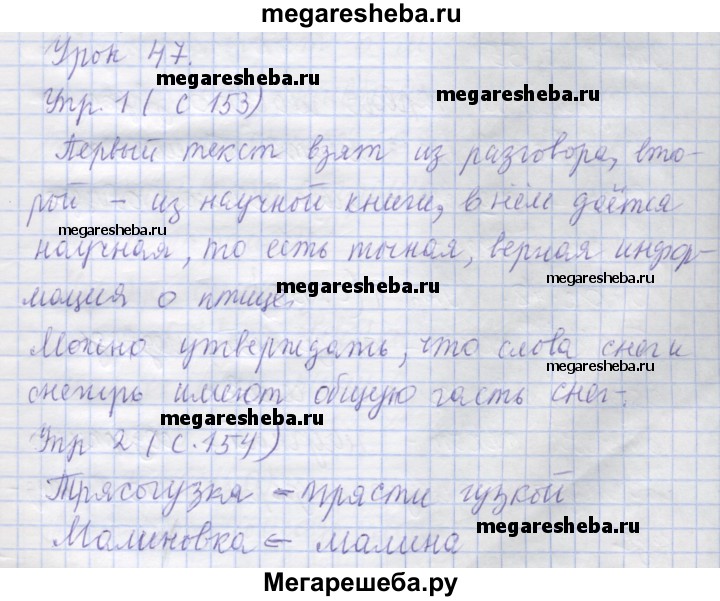 megaresheba.ru
Урок 47.
megaresheba.ru
Упр. 1 (с 153)
megaresheba.ru
Первый текст взят из разговора, вто-
рой – из научной книги, в нём даётся
megaresheba.ru
научная, то есть точная, верная инфор-
megaresheba.ru
мация о птице.
megaresheba.ru
Можно утверждать, что слова снег и
снегирь имеют общую часть снег-.
megaresheba.ru
megaresheba.ru
Упр 2 (с. 154)
Трясогузка – трясти гузкой
megaresheba.ru
Малиновка ← малина
Мегарешеба.ру